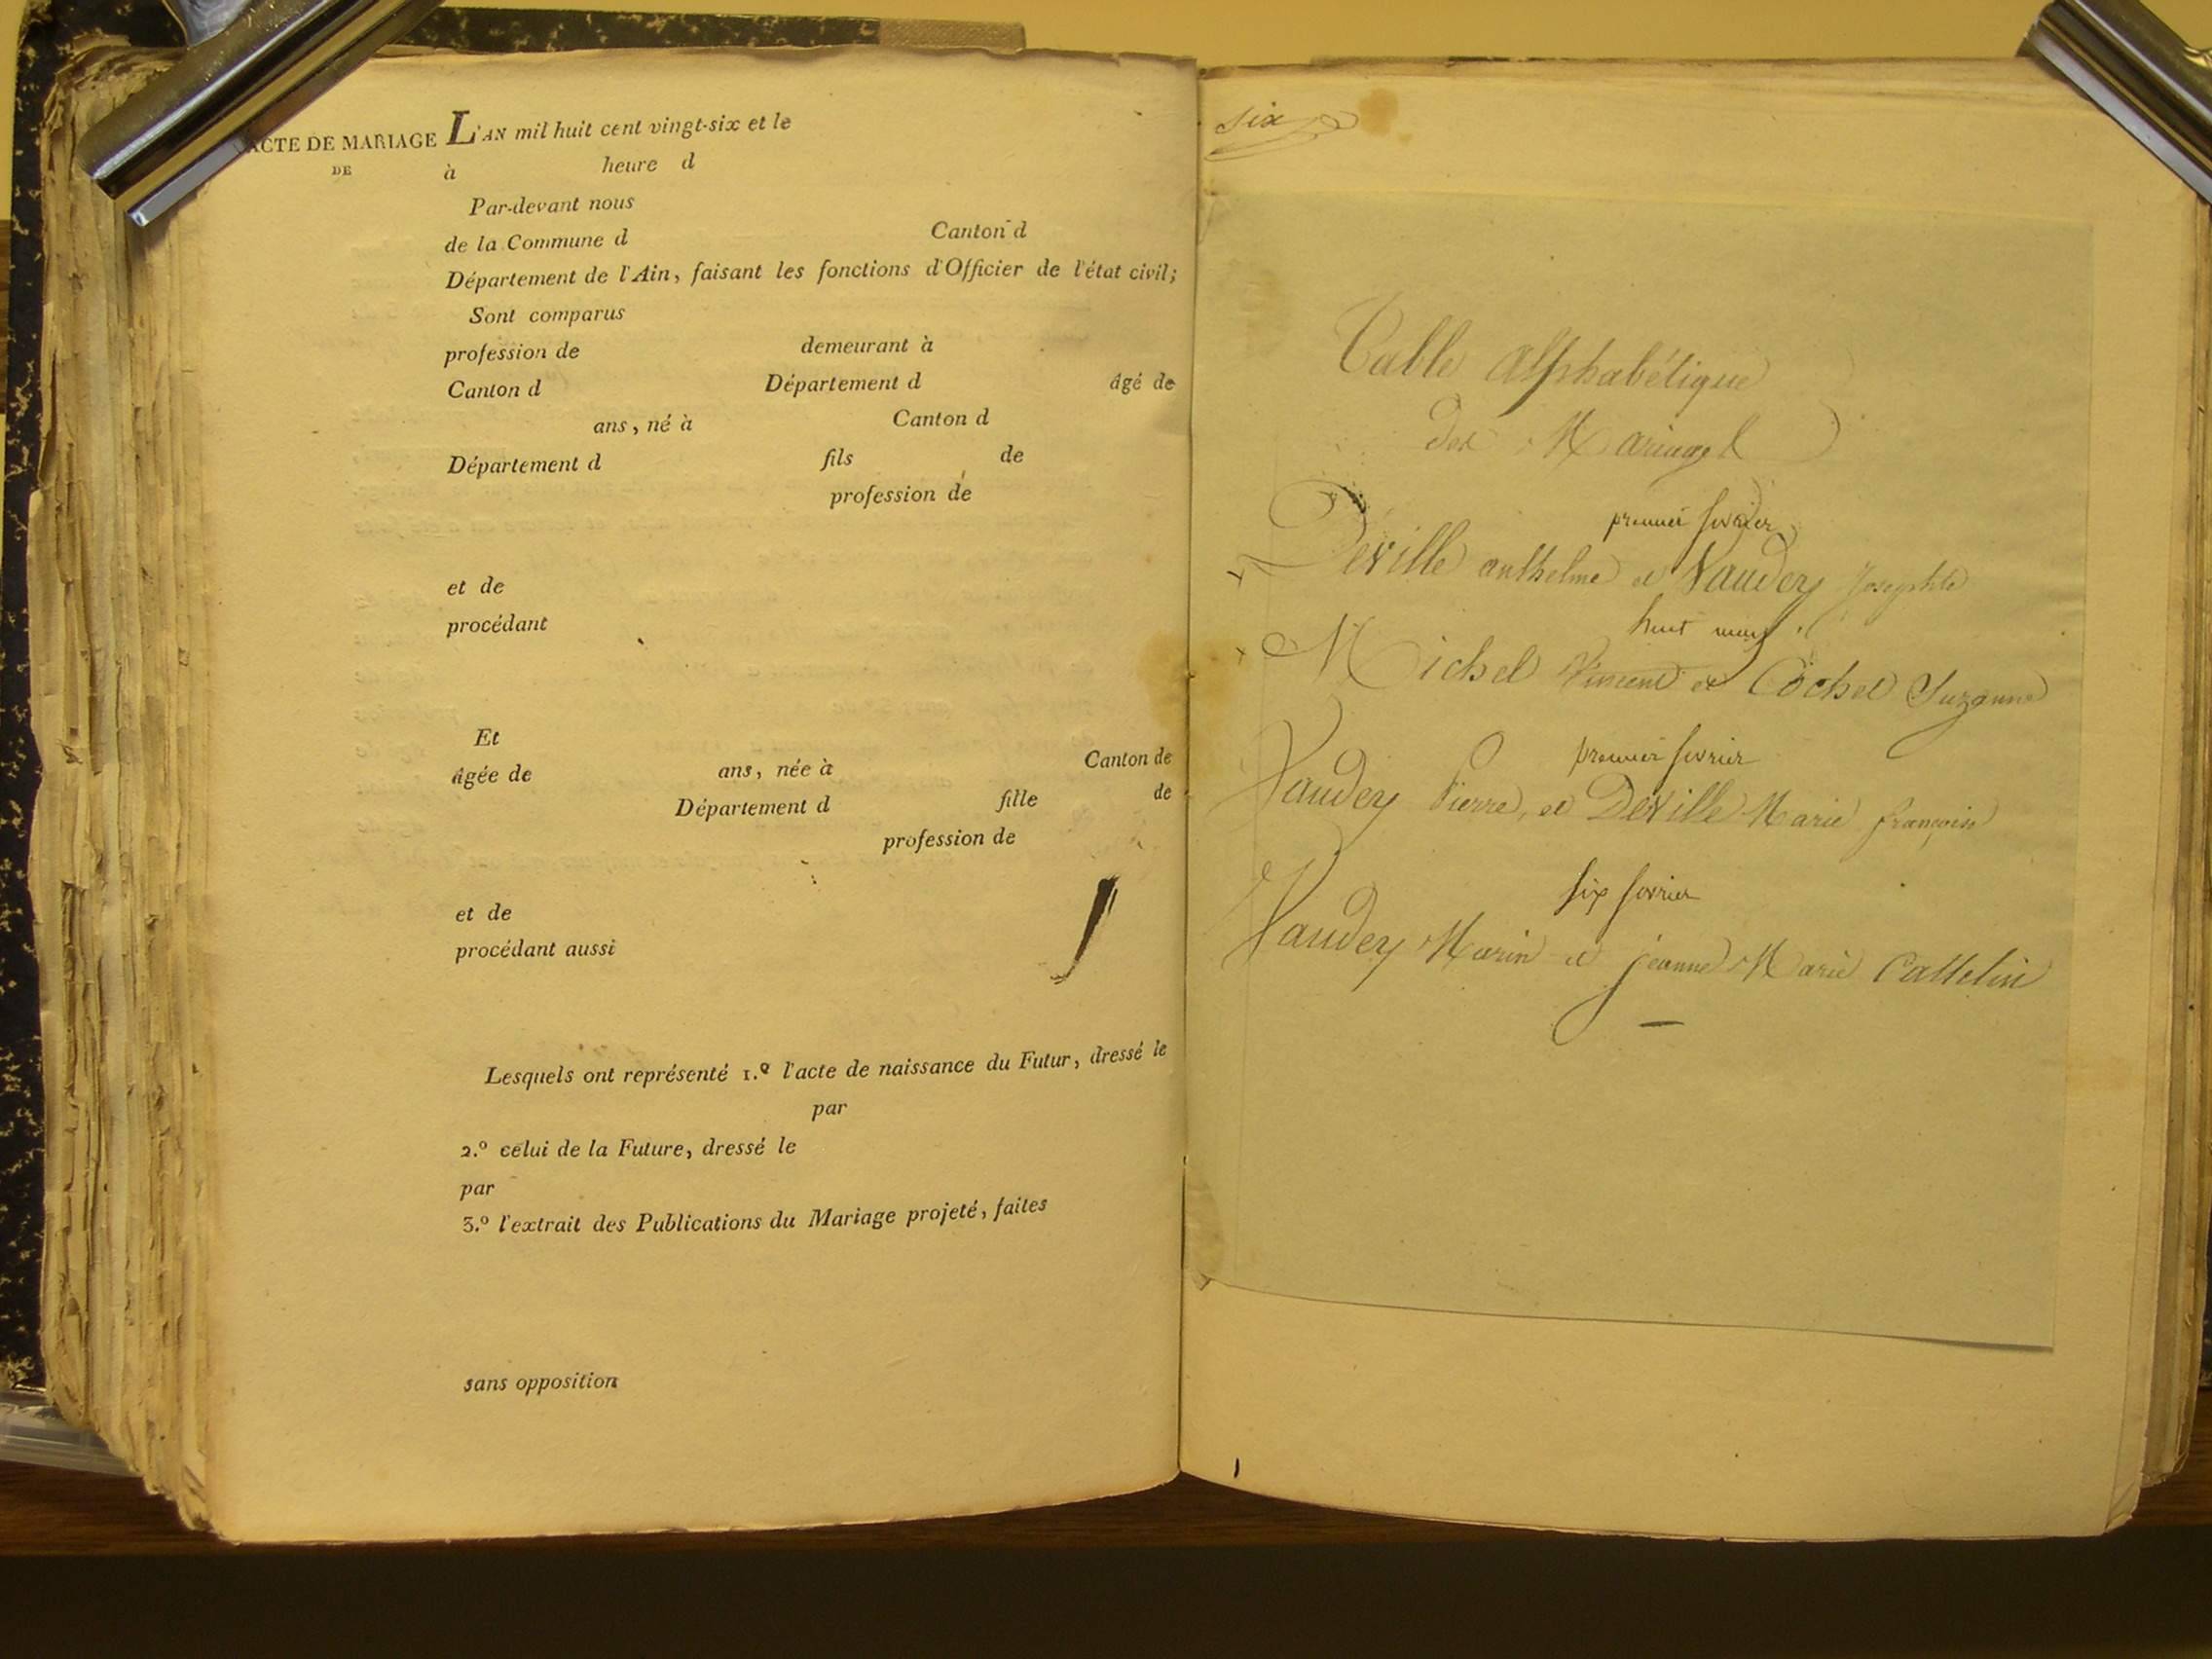 ACTE DE MARIAGE
DE
L'AN mil huit cent vingt-six et le
à heure d
Par-devant nous
de la Commune d Canton d
Département de l'Ain, faisant les fonctions d'Officier de l'état civil;
Sont comparus
profession de demeurant à
Canton d Département d âgé de
ans, né à Canton d
Département d fils de
profession de
et de
procédant
Et
âgée de ans, née à Canton de
Département d fille de
profession de
et de
procédant aussi
Lesquels ont représenté 1.º l'acte de naissance du Futur, dressé le
par
2.º celui de la Future, dressé le
par
3.º l'extrait des Publications du Mariage projeté, faites
sans opposition
six
Table Alphabétique
des Mariages
premier fevrier
Deville anthelme et Vaudey Josephte
huit mars
Michel Vincent et Cochet Suzanne
premier fevrier
Vaudey Pierre, et Deville Marie françoise
six fevrier
Vaudey Marin et jeanne Marie Cattelin